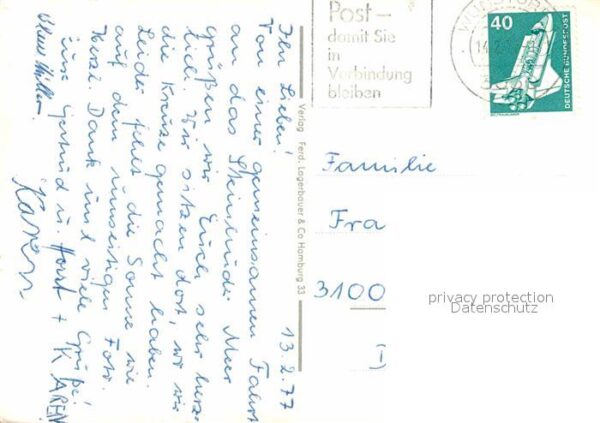 Post -
damit Sie
in
Verbindung
bleiben
40
DEUTSCHE BUNDESPOST
13.2.77
Ihr Lieben!
Von einer gemeinsamen Fahrt
an das Steinhuder Meer
grüßen wir Euch sehr herz-
lich. Wir sitzen dort, wo wir
die Kreuze gemacht haben.
Leider fehlt die Sonne wie
auf dem umseitigen Foto.
Herzl. Dank und viele Grüße!
Eure Gertrud u. Horst + KAREN
Karen
Verlag Ferd. Lagerbauer & Co Hamburg 33
Familie
Fra
3100
privacy protection
Datenschutz